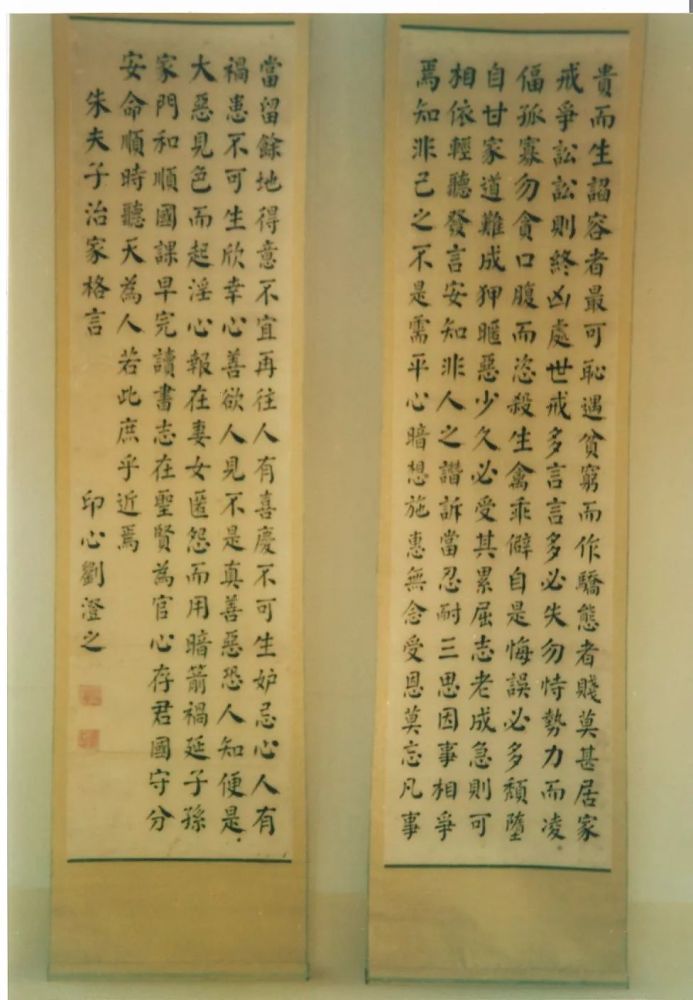 貴而生諂容者最可恥遇貧窮而作驕態者賤莫甚居家
戒爭訟訟則終凶處世戒多言言多必失勿恃勢力而凌
偪孤寡勿貪口腹而恣殺生禽乖僻自是悔誤必多頹墮
自甘家道難成狎暱惡少久必受其累屈志老成急則可
相依輕聽發言安知非人之譖訴當忍耐三思因事相爭
焉知非己之不是需平心暗想施惠無念受恩莫忘凡事
當留餘地得意不宜再往人有喜慶不可生妒忌心人有
禍患不可生欣幸心善欲人見不是真善惡恐人知便是
大惡見色而起淫心報在妻女匿怨而用暗箭禍延子孫
家門和順國課早完讀書志在聖賢為官心存君國守分
安命順時聽天為人若此庶乎近焉
朱夫子治家格言
印心劉澄之